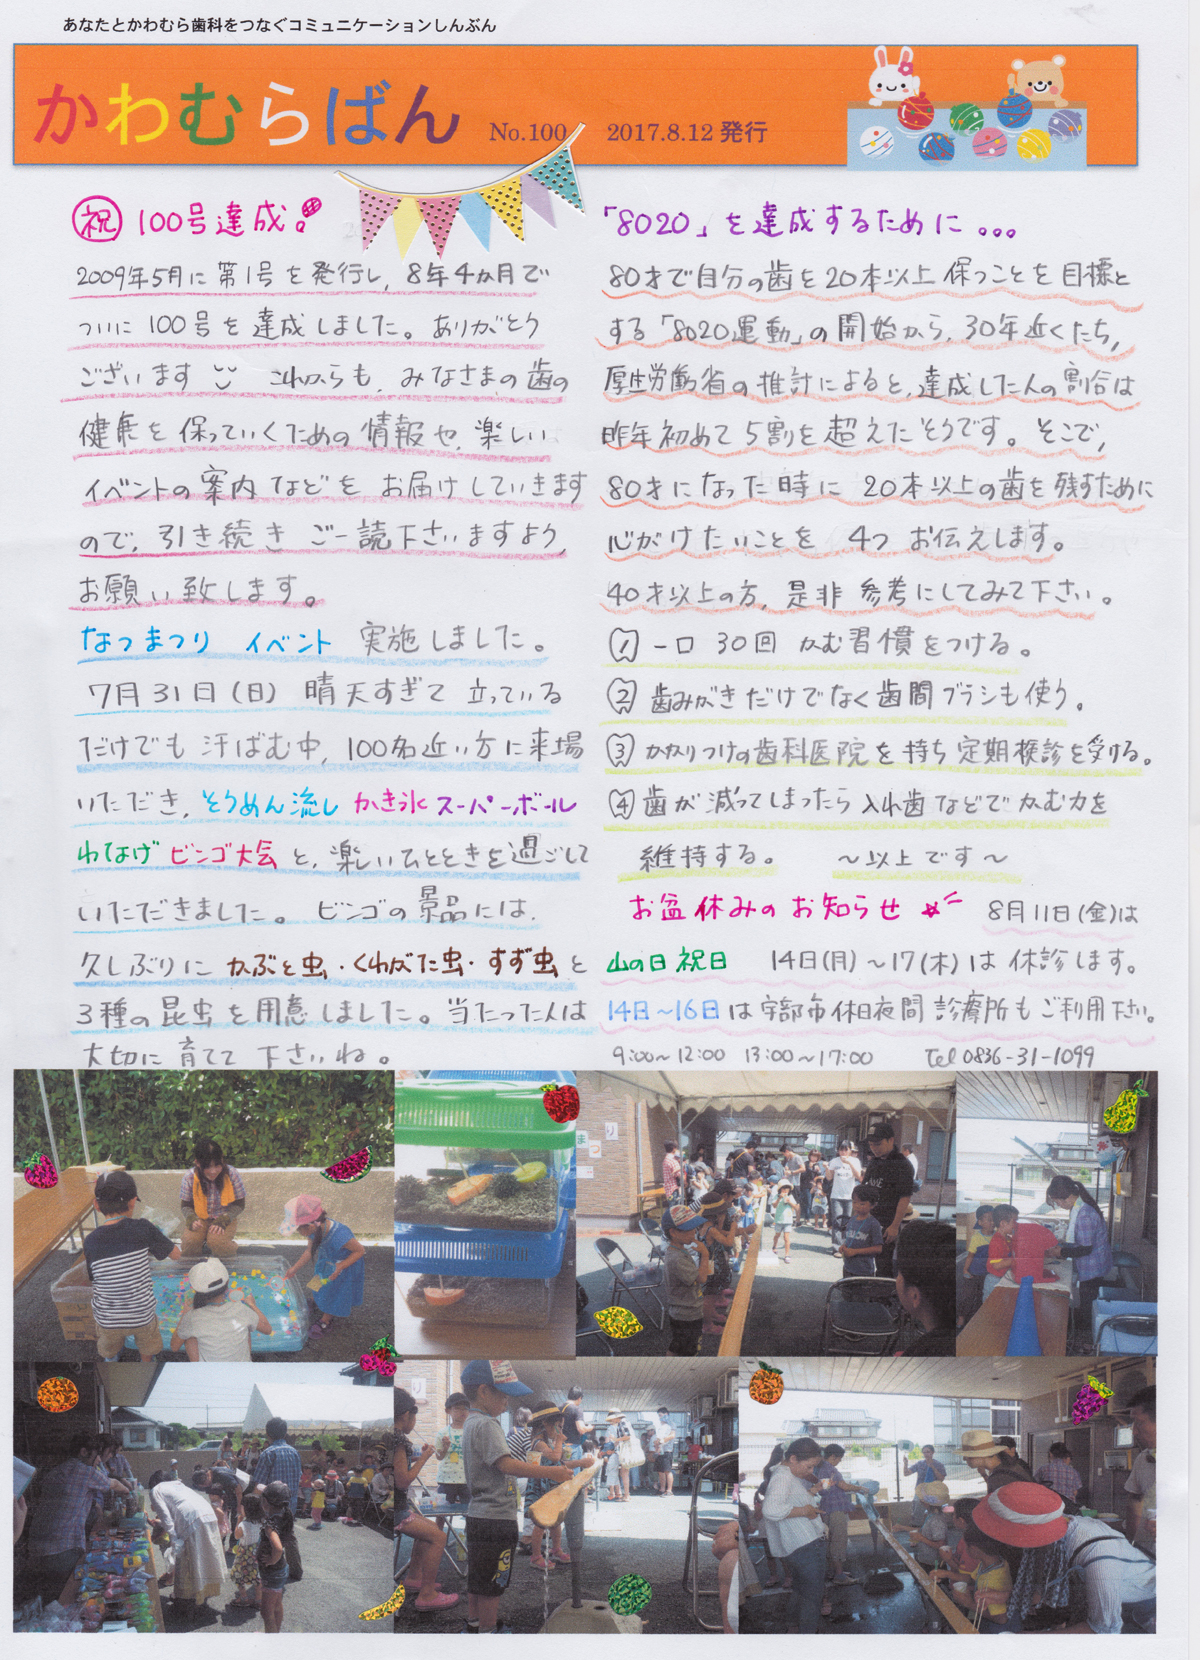 あなたとかわむら歯科をつなぐコミュニケーションしんぶん
かわむらばん No.100 2017.8.12 発行
㊗ 100号達成!
2009年5月に第1号を発行し、8年4か月で
ついに100号を達成しました。ありがとう
ございます これからも、みなさまの歯の
健康を保っていくための情報や、楽しい
イベントの案内などをお届けしていきます
ので、引き続きご一読下さいますよう、
お願い致します。
なつまつり イベント 実施しました。
7月31日(日) 晴天すぎて立っている
だけでも汗ばむ中、100名近い方に来場
いただき、そうめん流し かき氷 スーパーボール
わなげ ビンゴ大会と、楽しいひとときを過ごして
いただきました。ビンゴの景品には、
久しぶりに かぶと虫・くわがた虫・すず虫と
3種の昆虫を用意しました。当たった人は
大切に育てて下さいね。
「8020」を達成するために...
80才で自分の歯を20本以上保つことを目標と
する「8020運動」の開始から、30年近くたち、
厚生労働省の推計によると、達成した人の割合は
昨年初めて5割を超えたそうです。そこで、
80才になった時に20本以上の歯を残すために
心がけたいことを 4つ お伝えします。
40才以上の方、是非参考にしてみて下さい。
1 一口30回かむ習慣をつける。
2 歯みがきだけでなく歯間ブラシも使う。
3 かかりつけの歯科医院を持ち定期検診を受ける。
4 歯が減ってしまったら入れ歯などでかむ力を
維持する。 〜以上です〜
お盆休みのお知らせ 8月11日(金)は
山の日祝日 14日(月)〜17(木)は休診します。
14日〜16日は宇部市休日夜間診療所もご利用下さい。
9:00〜12:00 13:00〜17:00 Tel 0836-31-1099